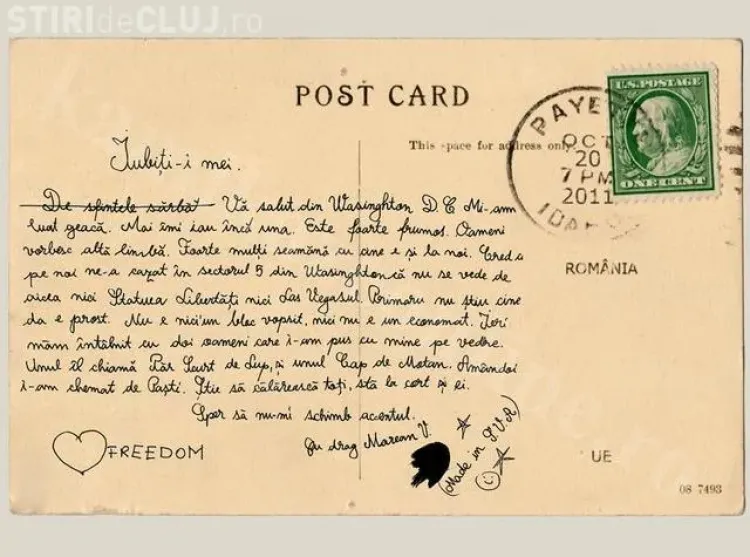 STIRIdeCLUJ.ro
POST CARD
This space for address only.
PAYE
OCT
20
7 PM
2011
IDAHO
U.S. POSTAGE
ONE CENT
Iubiți-i mei.
De sfintele sărbăt Vă salut din Wasinghton D C Mi-am
luat geacă. Mai îmi iau încă una. Este foarte frumos. Oameni
vorbesc altă limbă. Foarte mulți seamănă cu cine e și la noi. Cred a
pe noi ne-a cazat în sectorul 5 din Utasinghton că nu se vede de
aicea nici Statuea Libertăți nici Las Vegasul. Primaru nu știu cine
da e prost. Nu e nici'un bloc vopsit, nici nu e un economat. Ieri
mam întâlnit cu doi oameni care i-am pus cu mine pe vedere.
Unul îl chiamă Păr Scurt de Lup, și unul Cap de Motan. Amândoi
i-am chemat de Paști. Știe să călărească toți, stă la cort și ei.
Sper să nu-mi schimb acentul.
Cu drag Marean V.
FREEDOM
(Made in S.U.A)
ROMÂNIA
UE
08 7493